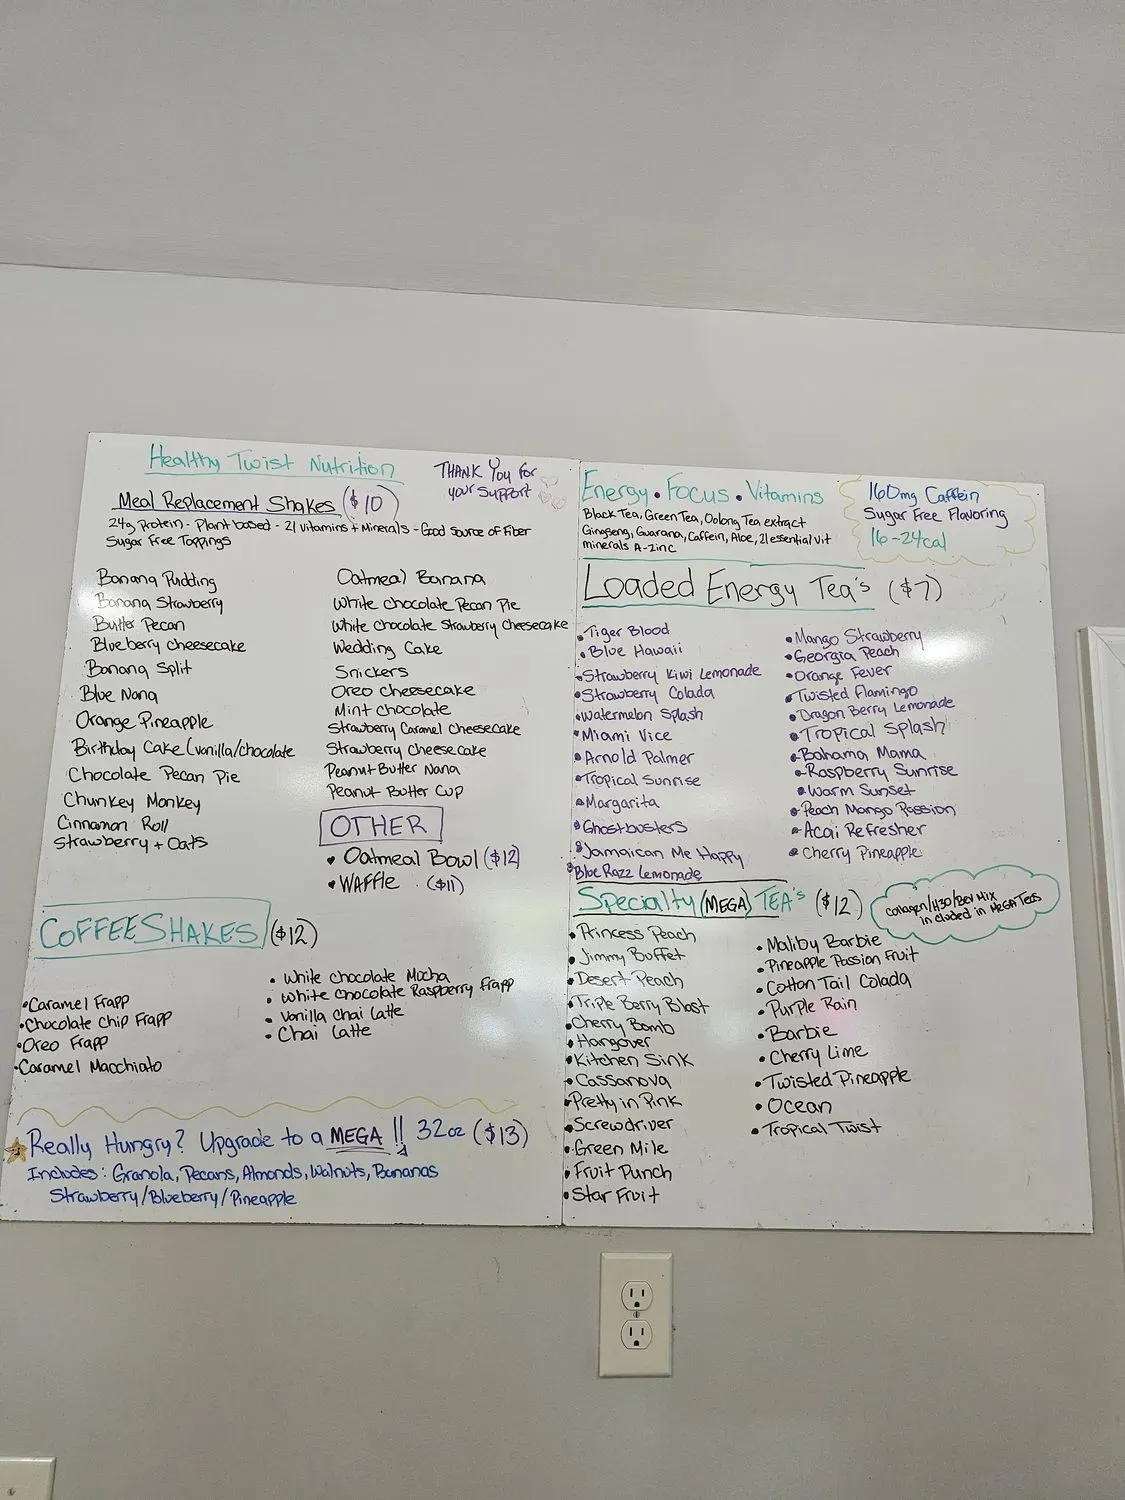 Healthy Twist Nutrition
THANK You for
your Support
Meal Replacement Shakes ($10)
24g Protein - Plant based - 21 vitamins + Minerals - Good Source of Fiber
Sugar Free Toppings
Banana Pudding
Banana Strawberry
Butter Pecan
Blueberry Cheesecake
Banana Split
Blue Nana
Orange Pineapple
Birthday Cake (vanilla/chocolate
Chocolate Pecan Pie
Chunkey Monkey
Cinnamon Roll
Strawberry + Oats
Oatmeal Banana
White chocolate Pecan Pie
White chocolate Strawberry Cheesecake
Wedding Cake
Snickers
Oreo Cheesecake
Mint Chocolate
Strawberry Caramel Cheesecake
Strawberry Cheesecake
Peanut Butter Nana
Peanut Butter Cup
OTHER
• Oatmeal Bowl ($12)
• WAFFle ($11)
COFFEESHAKES ($12)
• Caramel Frapp
• Chocolate Chip Frapp
• Oreo Frapp
• Caramel Macchiato
• White Chocolate Mocha
• White Chocolate Raspberry Frapp
• Vanilla Chai Latte
• Chai Latte
Really Hungry? Upgrade to a MEGA !! 32oz ($13)
Includes: Granola, Pecans, Almonds, Walnuts, Bananas
Strawberry/Blueberry/Pineapple
Energy • Focus • Vitamins
Black Tea, Green Tea, Oolong Tea extract
Gingseng, Guarana, Caffein, Aloe, 21 essential vit
minerals A-zinc
160mg Caffein
Sugar Free Flavoring
16-24cal
Loaded Energy Tea's ($7)
• Tiger Blood
• Blue Hawaii
• Strawberry Kiwi Lemonade
• Strawberry Colada
• Watermelon Splash
• Miami Vice
• Arnold Palmer
• Tropical Sunrise
• Margarita
• Ghostbusters
• Jamaican Me Happy
• Blue Razz Lemonade
• Mango Strawberry
• Georgia Peach
• Orange Fever
• Twisted Flamingo
• Dragon Berry Lemonade
• Tropical Splash
• Bahama Mama
• Raspberry Sunrise
• Warm Sunset
• Peach Mango Passion
• Acai Refresher
• Cherry Pineapple
Specialty (MEGA) TEA's ($12)
Collagen/H30/Bev Mix
included in MEGA Teas
• Princess Peach
• Jimmy Buffet
• Desert Peach
• Triple Berry Blast
• Cherry Bomb
• Hangover
• Kitchen Sink
• Cassanova
• Pretty in Pink
• Screwdriver
• Green Mile
• Fruit Punch
• Star Fruit
• Maliby Barbie
• Pineapple Passion Fruit
• Cotton Tail Colada
• Purple Rain
• Barbie
• Cherry Lime
• Twisted Pineapple
• Ocean
• Tropical Twist